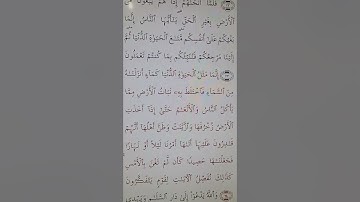 فَلَمَّآ أَنجَىٰهُمْ إِذَا هُمْ يَبْغُونَ فِى
ٱلْأَرْضِ بِغَيْرِ ٱلْحَقِّ يَـٰٓأَيُّهَا ٱلنَّاسُ إِنَّمَا
بَغْيُكُمْ عَلَىٰٓ أَنفُسِكُم مَّتَـٰعَ ٱلْحَيَوٰةِ ٱلدُّنْيَا ثُمَّ
إِلَيْنَا مَرْجِعُكُمْ فَنُنَبِّئُكُم بِمَا كُنتُمْ تَعْمَلُونَ
إِنَّمَا مَثَلُ ٱلْحَيَوٰةِ ٱلدُّنْيَا كَمَآءٍ أَنزَلْنَـٰهُ
مِنَ ٱلسَّمَآءِ فَٱخْتَلَطَ بِهِۦ نَبَاتُ ٱلْأَرْضِ مِمَّا
يَأْكُلُ ٱلنَّاسُ وَٱلْأَنْعَـٰمُ حَتَّىٰٓ إِذَآ أَخَذَتِ
ٱلْأَرْضُ زُخْرُفَهَا وَٱزَّيَّنَتْ وَظَنَّ أَهْلُهَآ أَنَّهُمْ
قَـٰدِرُونَ عَلَيْهَآ أَتَىٰهَآ أَمْرُنَا لَيْلًا أَوْ نَهَارًا
فَجَعَلْنَـٰهَا حَصِيدًا كَأَن لَّمْ تَغْنَ بِٱلْأَمْسِ
كَذَٰلِكَ نُفَصِّلُ ٱلْـَٔايَـٰتِ لِقَوْمٍ يَتَفَكَّرُونَ
وَٱللَّهُ يَدْعُوٓا۟ إِلَىٰ دَارِ ٱلسَّلَـٰمِ وَيَهْدِى